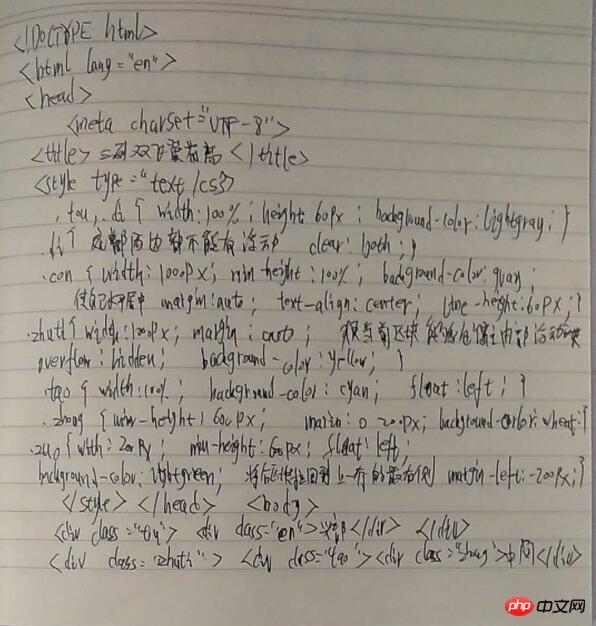 <!DOCTYPE html>
<html lang="en">
<head>
<meta charset="UTF-8">
<title>三列双飞翼布局</title>
<style type="text/css">
.tou,.di { width:100%; height:60px; background-color:lightgray; }
.di{ 底部两边都不能有浮动 clear:both; }
.con { width:1000px; min-height:100%; background-color:gray;
使自己水平居中 margin:auto; text-align:center; line-height:60px; }
.zhuti{ width:1000px; margin:auto;
overflow:hidden; background-color:yellow; }
.tao { width:100%; background-color:cyan; float:left; }
.zhong { min-height:600px; margin:0 200px; background-color:wheat; }
.zuo { with:200px; min-height:600px; float:left;
background-color:lightgreen; margin-left:-200px; }
</style> </head> <body>
<div class="tou"> <div class="con"></div> </div>
<div class="zhuti"> <div class="tao"><div class="zhong">中间</div>
php 中文网